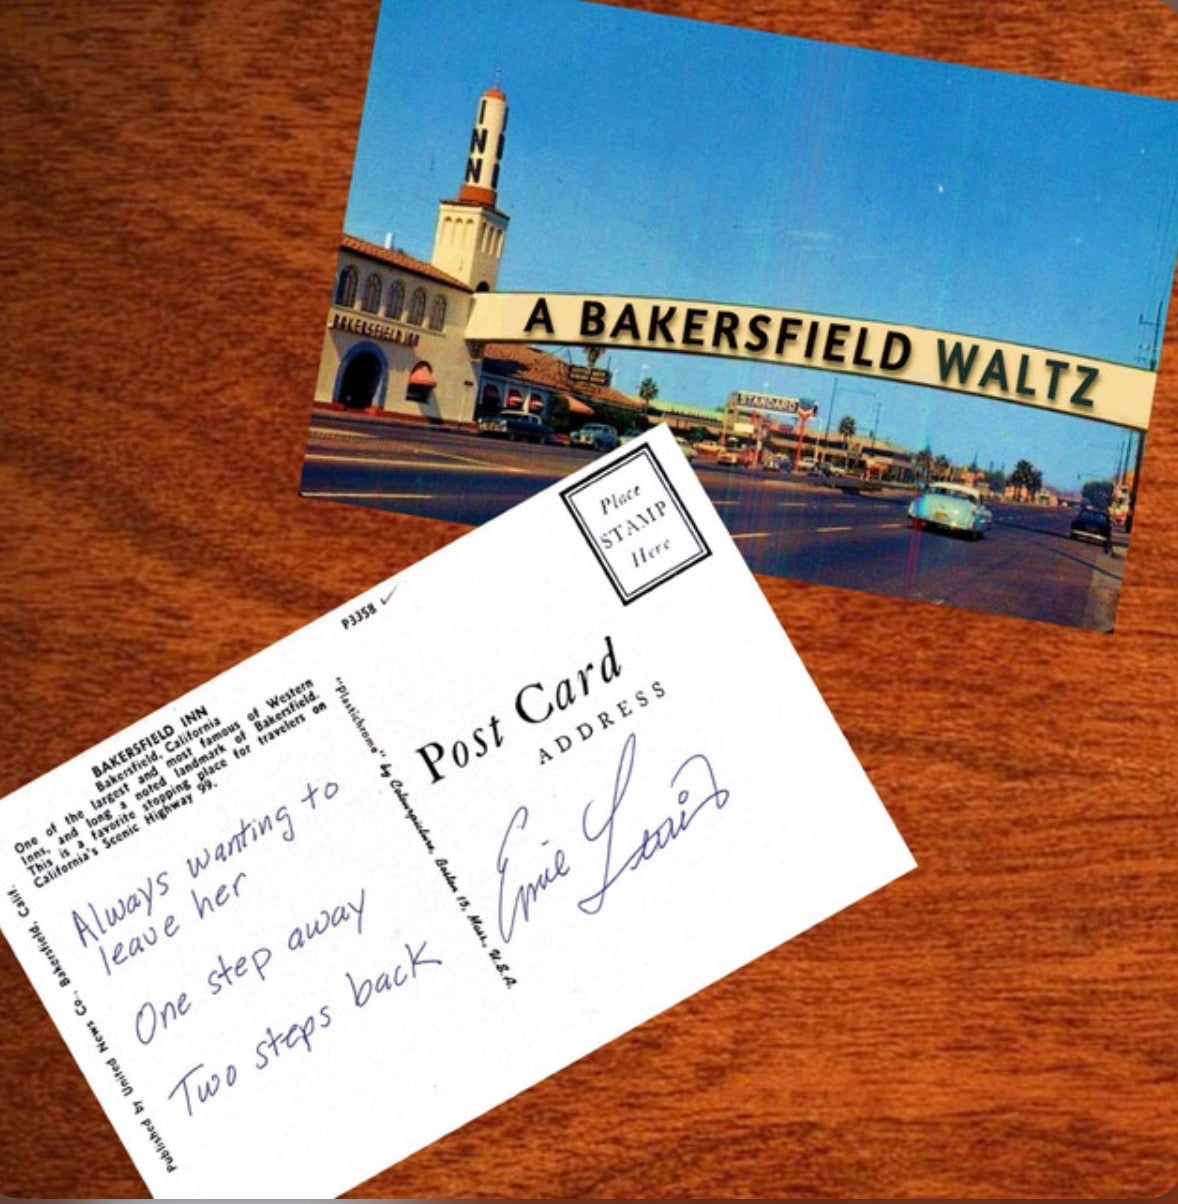 INN
A BAKERSFIELD WALTZ
BAKERSFIELD INN
STANDARD
Place
STAMP
Here
P3358
BAKERSFIELD INN
Bakersfield, California
One of the largest and most famous of Western
Inns, and long a noted landmark of Bakersfield.
This is a favorite stopping place for travelers on
California's Scenic Highway 99.
Always wanting to
leave her
One step away
Two steps back
Published by United News Co., Bakersfield, Calif.
"Plastichrome" by Colourpicture, Boston 15, Mass., U.S.A.
Post Card
ADDRESS
Ernie